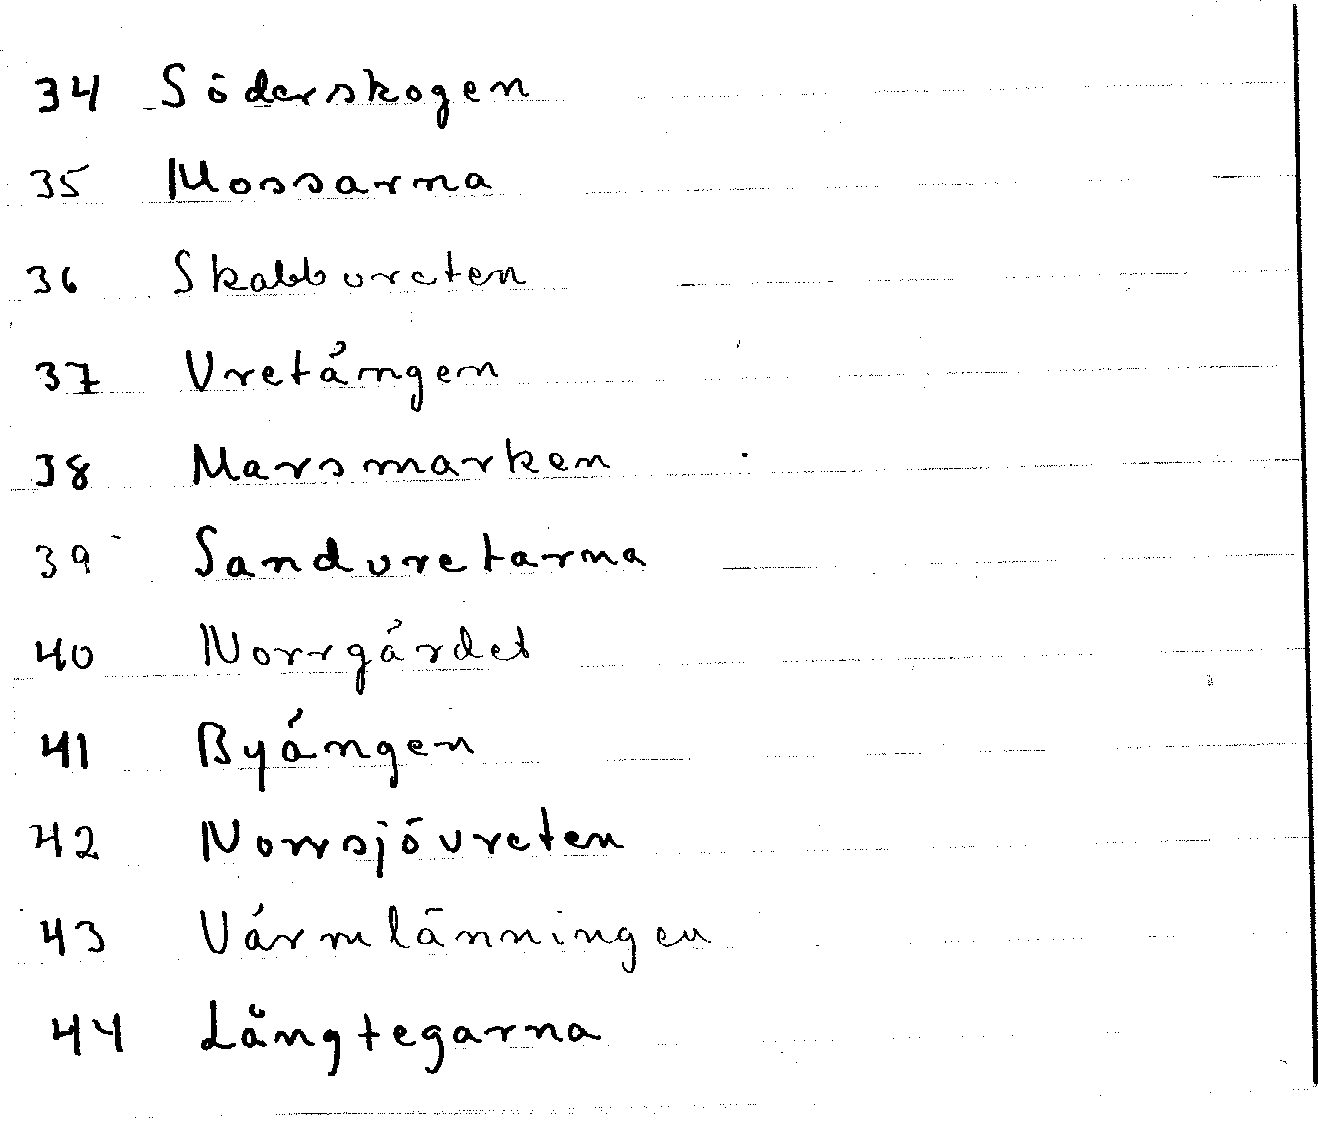 34 Söderskogen
35 Mossarna
36 Skabbvreten
37 Vretängen
38 Marsmarken
39 Sandvretarna
40 Norrgärdet
41 Byängen
42 Norrsjövreten
43 Värmlänningen
44 Långtegarna